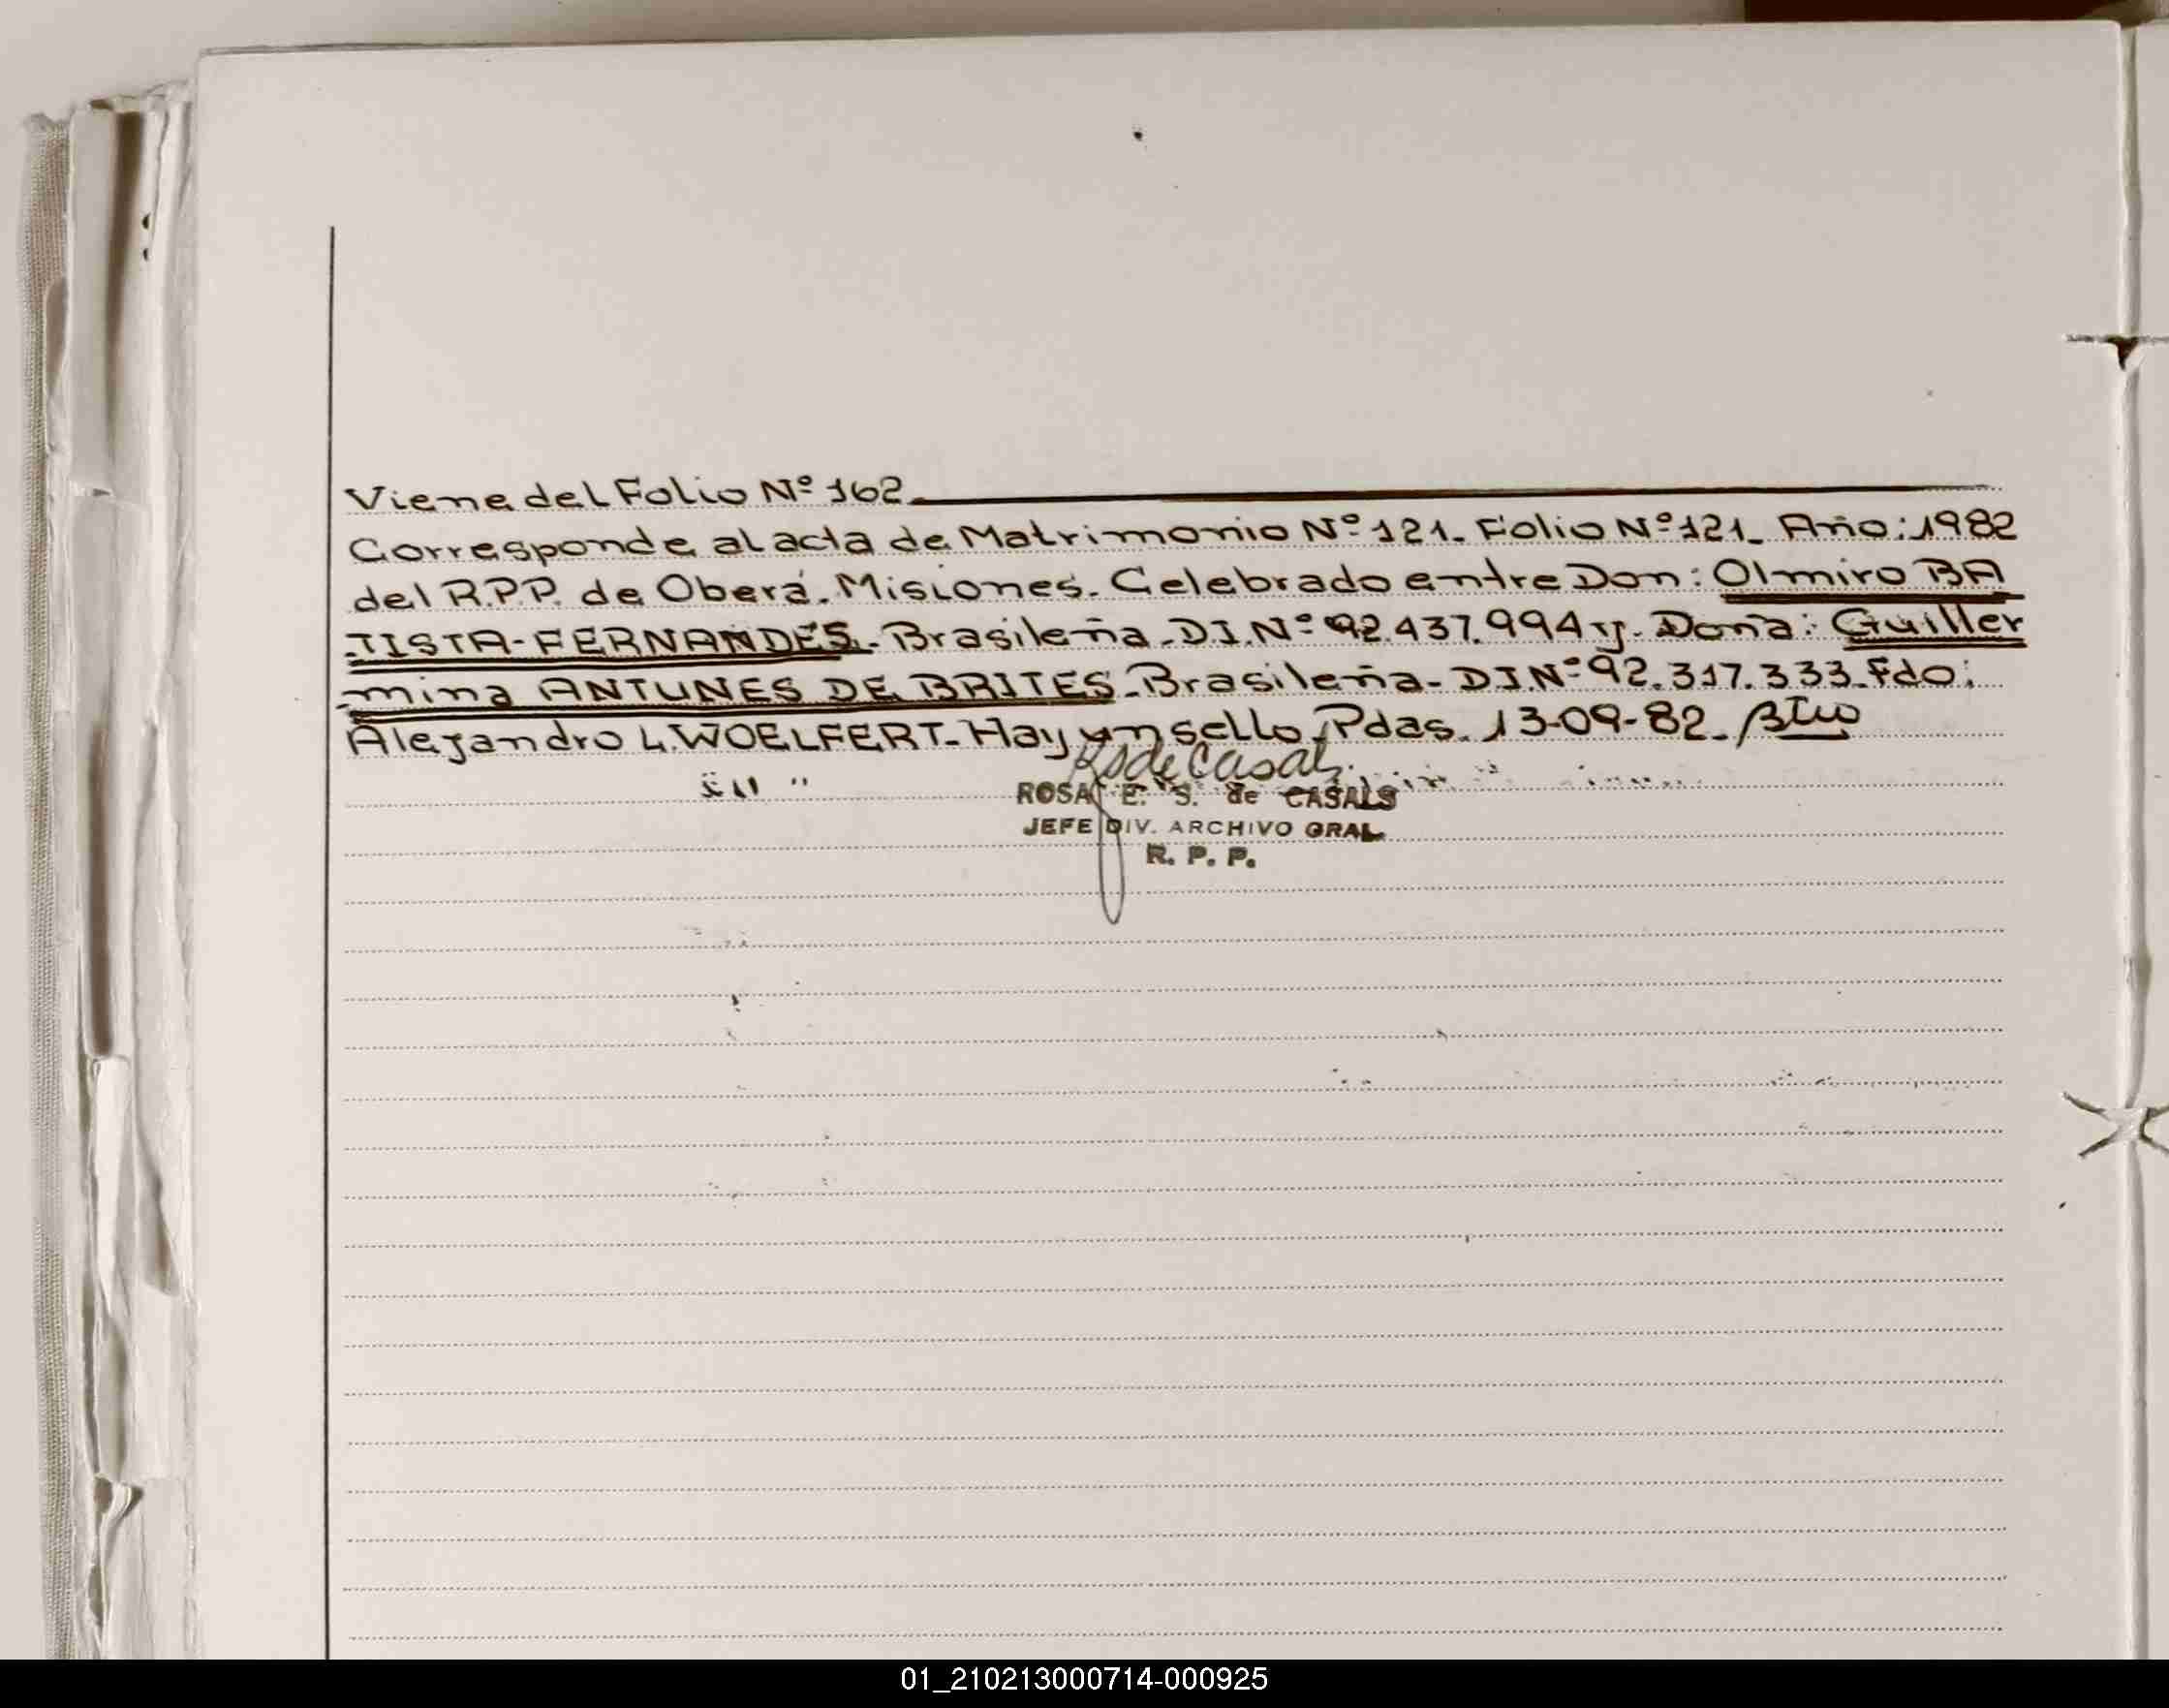 Viene del Folio Nº 162.
Corresponde al acta de Matrimonio Nº 121. Folio Nº 121_ Año: 1982
del R.P.P. de Oberá. Misiones. Celebrado entre Don: Olmiro BA
TISTA-FERNANDES. Brasileña. D.I. Nº 92.437.994 y. Doña: Guiller
mina ANTUNES DE BRITES. Brasileña. DI. Nº 92.317.333. Fdo:
Alejandro L. WOELFERT. Hay un sello. Pdas. 13-09-82.
RS de Casals
ROSA E. S. de CASALS
JEFE DIV. ARCHIVO GRAL
R. P. P.
01_210213000714-000925